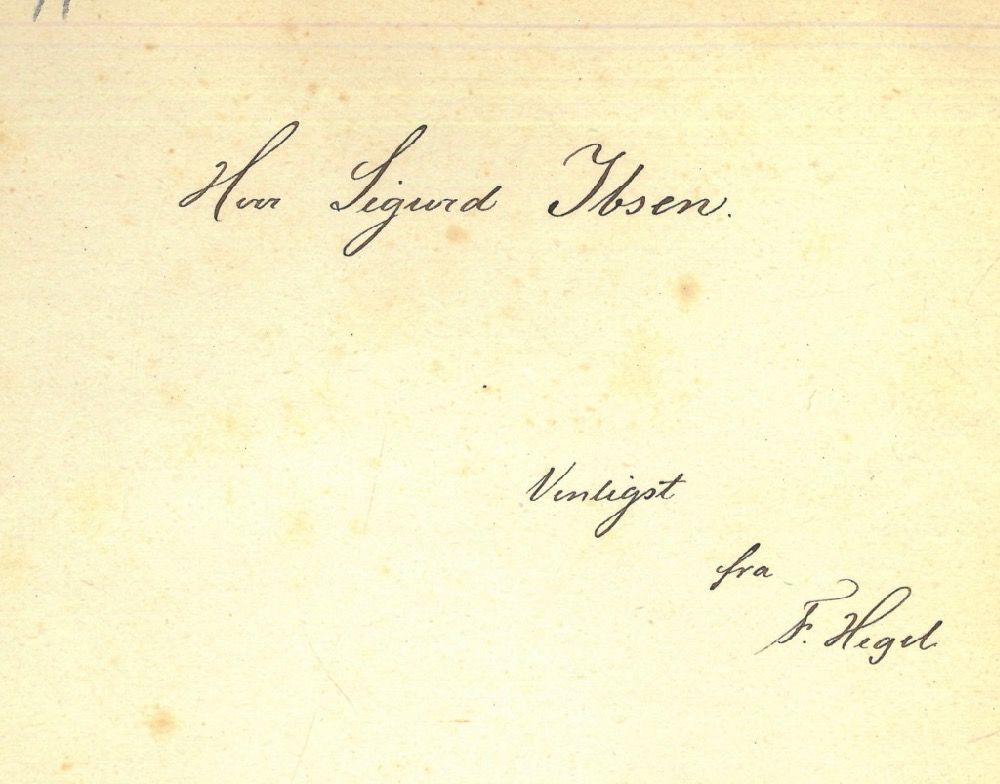 Herr Sigurd Ibsen.
Venligst
fra
F. Hegel